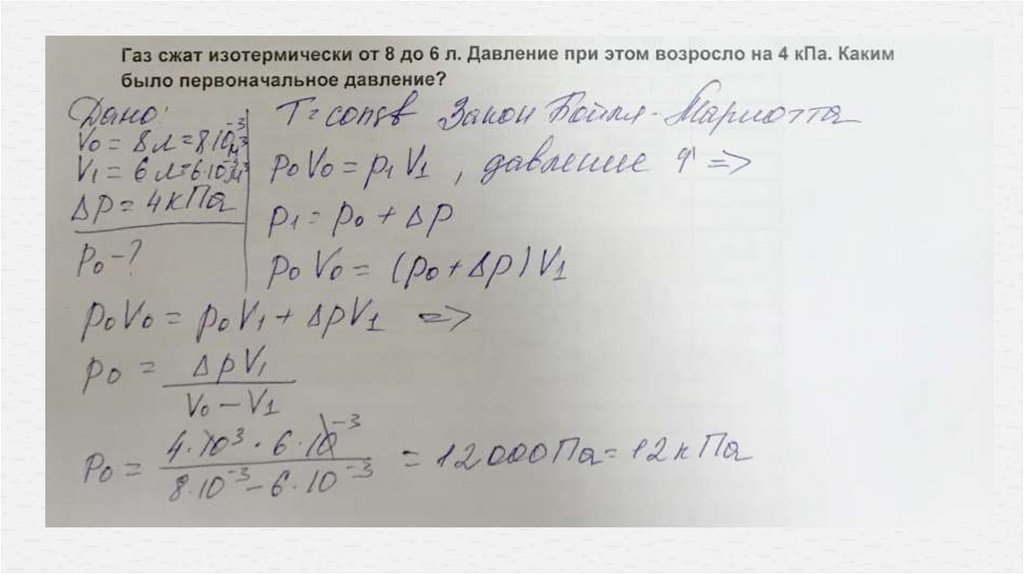 Газ сжат изотермически от 8 до 6 л. Давление при этом возросло на 4 кПа. Каким
было первоначальное давление?
Дано:
V₀ = 8 л = 8·10⁻³ м³
V₁ = 6 л = 6·10⁻³ м³
Δp = 4 кПа
p₀ - ?
T = const Закон Бойля - Мариотта
p₀V₀ = p₁V₁ , давление ↑ =>
p₁ = p₀ + Δp
p₀V₀ = (p₀ + Δp)V₁
p₀V₀ = p₀V₁ + ΔpV₁ =>
p₀ = ΔpV₁ / V₀ - V₁
p₀ = 4·10³ · 6·10⁻³ / 8·10⁻³ - 6·10⁻³ = 12000 Па = 12 кПа